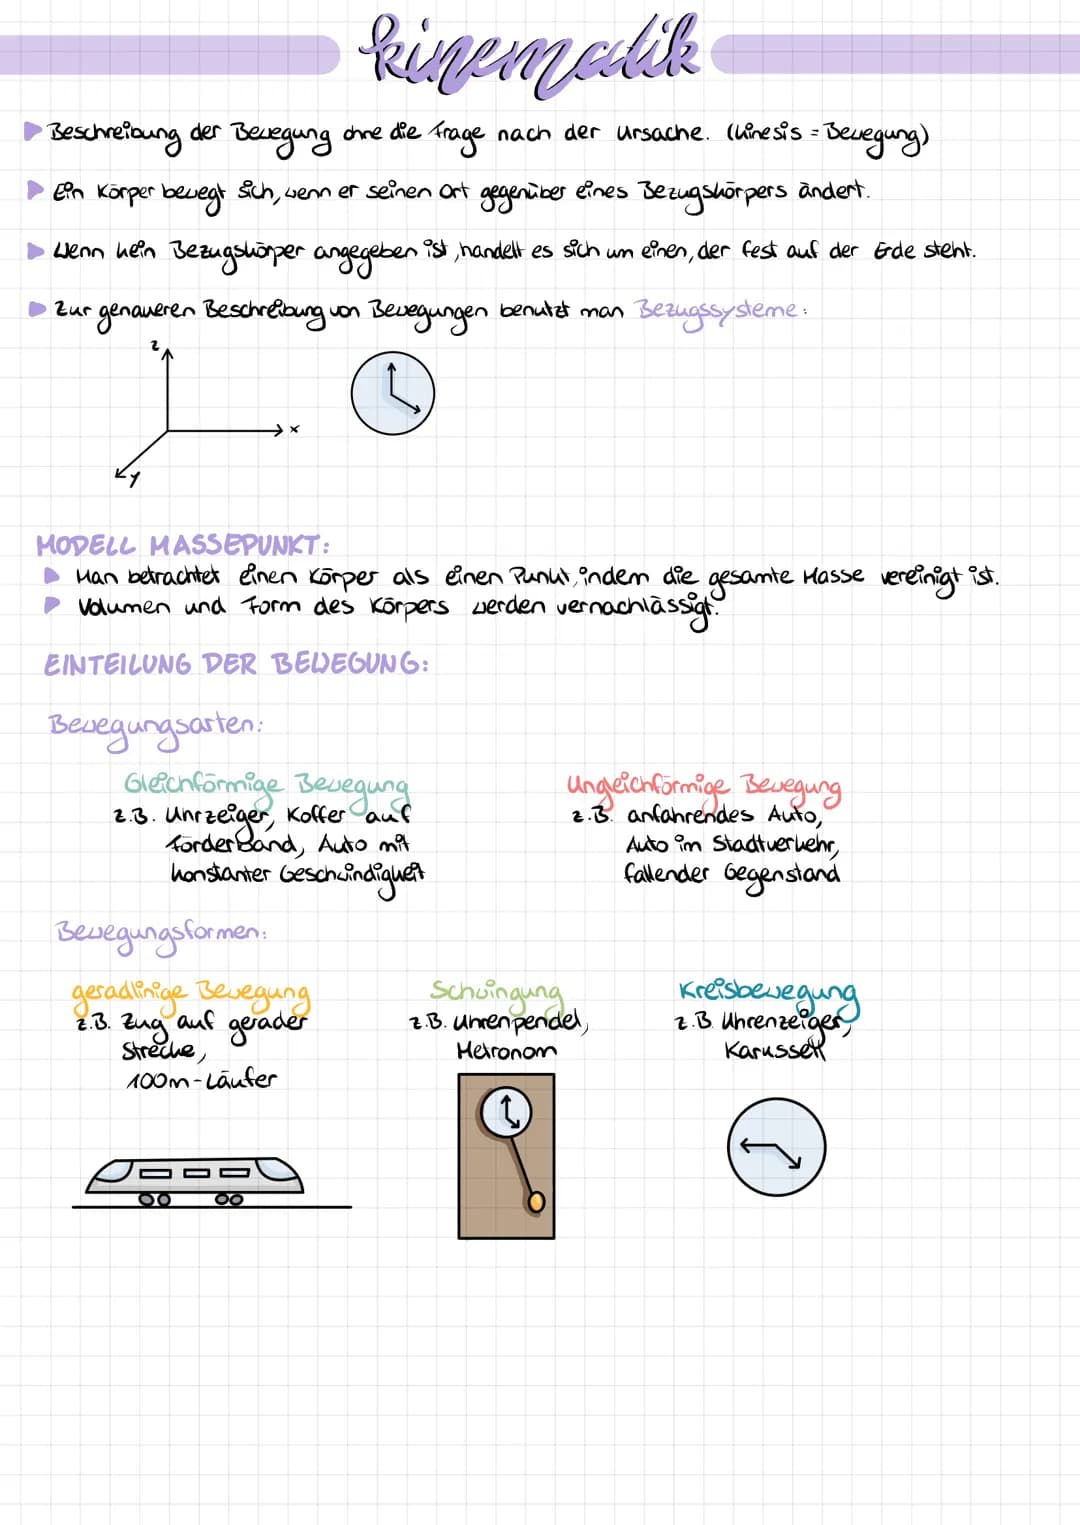 kinematik
Beschreibung der Bewegung ohne die Frage nach der Ursache. (Kinesis = Bewegung)
Ein Körper bewegt sich, wenn er seinen Ort gegenüber eines Bezugskörpers ändert.
Wenn kein Bezugskörper angegeben ist, handelt es sich um einen, der fest auf der Erde steht.
Zur genaueren Beschreibung von Bewegungen benutzt man Bezugssysteme:
z
x
y
MODELL MASSEPUNKT:
Man betrachtet einen Körper als einen Punkt, indem die gesamte Masse vereinigt ist.
Volumen und Form des Körpers werden vernachlässigt.
EINTEILUNG DER BEWEGUNG:
Bewegungsarten:
Gleichförmige Bewegung
z.B. Uhrzeiger, Koffer auf
Förderband, Auto mit
konstanter Geschwindigkeit
Ungleichförmige Bewegung
z.B. anfahrendes Auto,
Auto im Stadtverkehr,
fallender Gegenstand
Bewegungsformen:
geradlinige Bewegung
z.B. Zug auf gerader
Strecke,
100m-Läufer
Schwingung
z.B. Uhrenpendel,
Metronom
Kreisbewegung
z.B. Uhrenzeiger,
Karussell